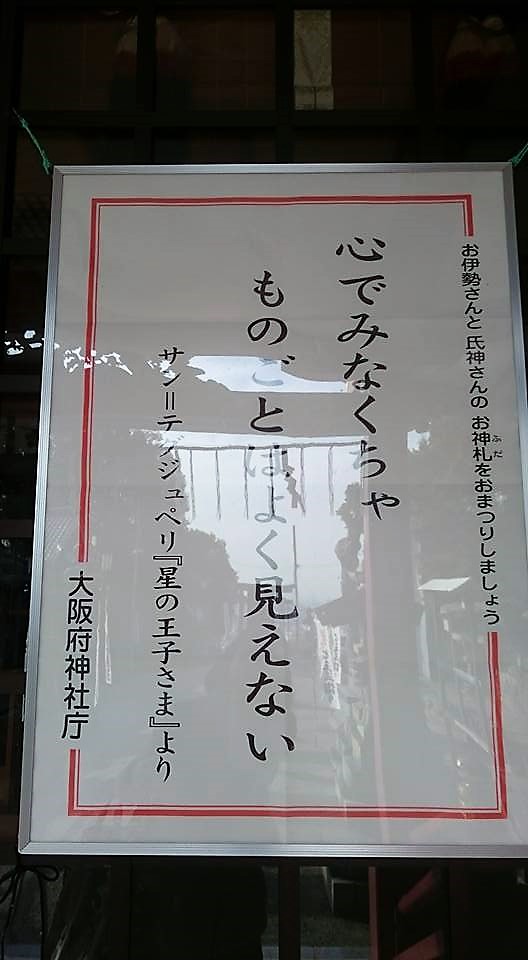 お伊勢さんと氏神さんのお神札をおまつりしましょう
ふだ
心でみなくちゃ
ものごとはよく見えない
サン＝テグジュペリ『星の王子さま』より
大阪府神社庁